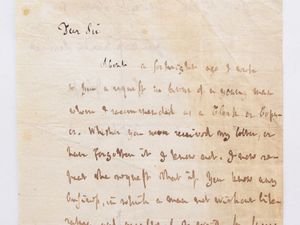 Dear Sir
About a fortnight ago I wrote
to you a request in favour of a young man
whom I recommended as a Clerk or Copy
er. Whether you never received my letter, or
have forgotten it I know not. I now re
peat the request that if you know any
business, in which a man not without lite
rature and